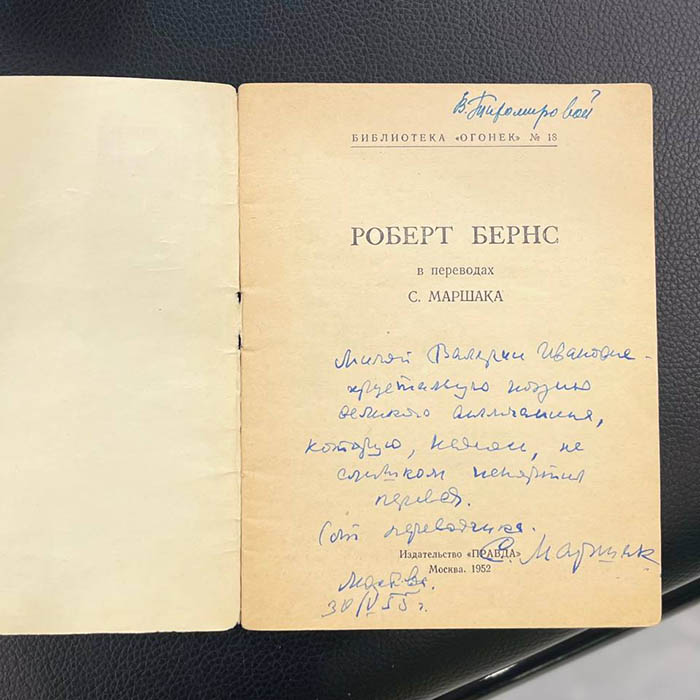 В. Тихомировой
БИБЛИОТЕКА «ОГОНЕК» № 18
РОБЕРТ БЕРНС
в переводах
С. МАРШАКА
Милой Валерии Ивановне -
поэзию
великого
которую, не
слишком испортил
перевод.
От переводчика.
С. Маршак
Издательство «ПРАВДА»
Москва. 1952
Москва.
30/IV 55 г.